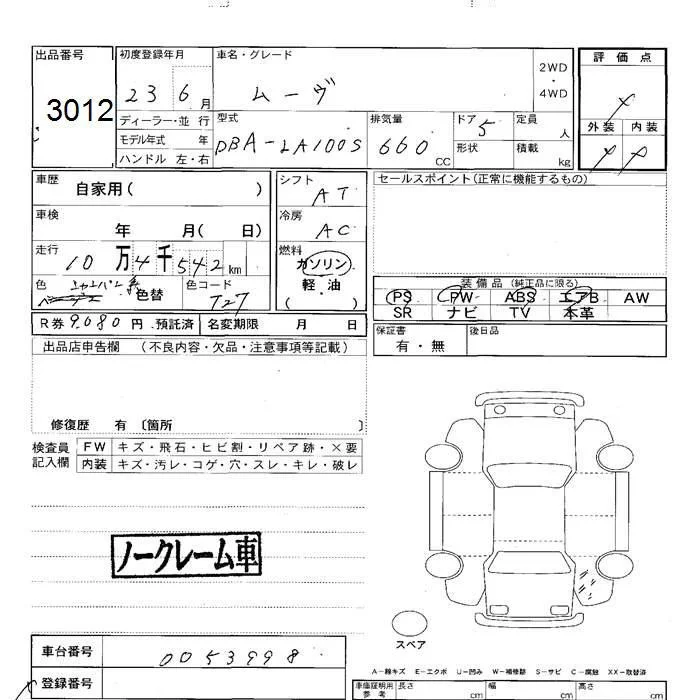 出品番号
3012
初度登録年月
23 6 月
車名・グレード
ムーヴ
2WD
・
4WD
評価点
外装 内装
ディーラー・並行
モデル年式 年
ハンドル 左・右
型式
DBA-LA100S
排気量
660 CC
ドア 5
形状
定員 人
積載 kg
車歴
自家用( )
車検
年 月( 日)
走行
10万4千542km
色
シャンパン系
色替
色コード
T27
シフト
AT
冷房
AC
燃料
ガソリン
軽・油
( )
セールスポイント(正常に機能するもの)
装備品(純正品に限る)
PS PW ABS エアB AW
SR ナビ TV 本革
R券 9,080 円 預託済 名変期限 月 日
保証書
有・無
後日品
出品店申告欄 (不良内容・欠品・注意事項等記載)
修復歴 有 〔箇所 〕
検査員
記入欄
FW キズ・飛石・ヒビ割・リペア跡・×要
内装 キズ・汚レ・コゲ・穴・スレ・キレ・破レ
ノークレーム車
スペア
車台番号
0053998
登録番号
A−線キズ E−エクボ U−凹み W−補修跡 S−サビ C−腐蝕 XX−取替済
車庫証明用
参考
長さ cm
幅 cm
高さ cm